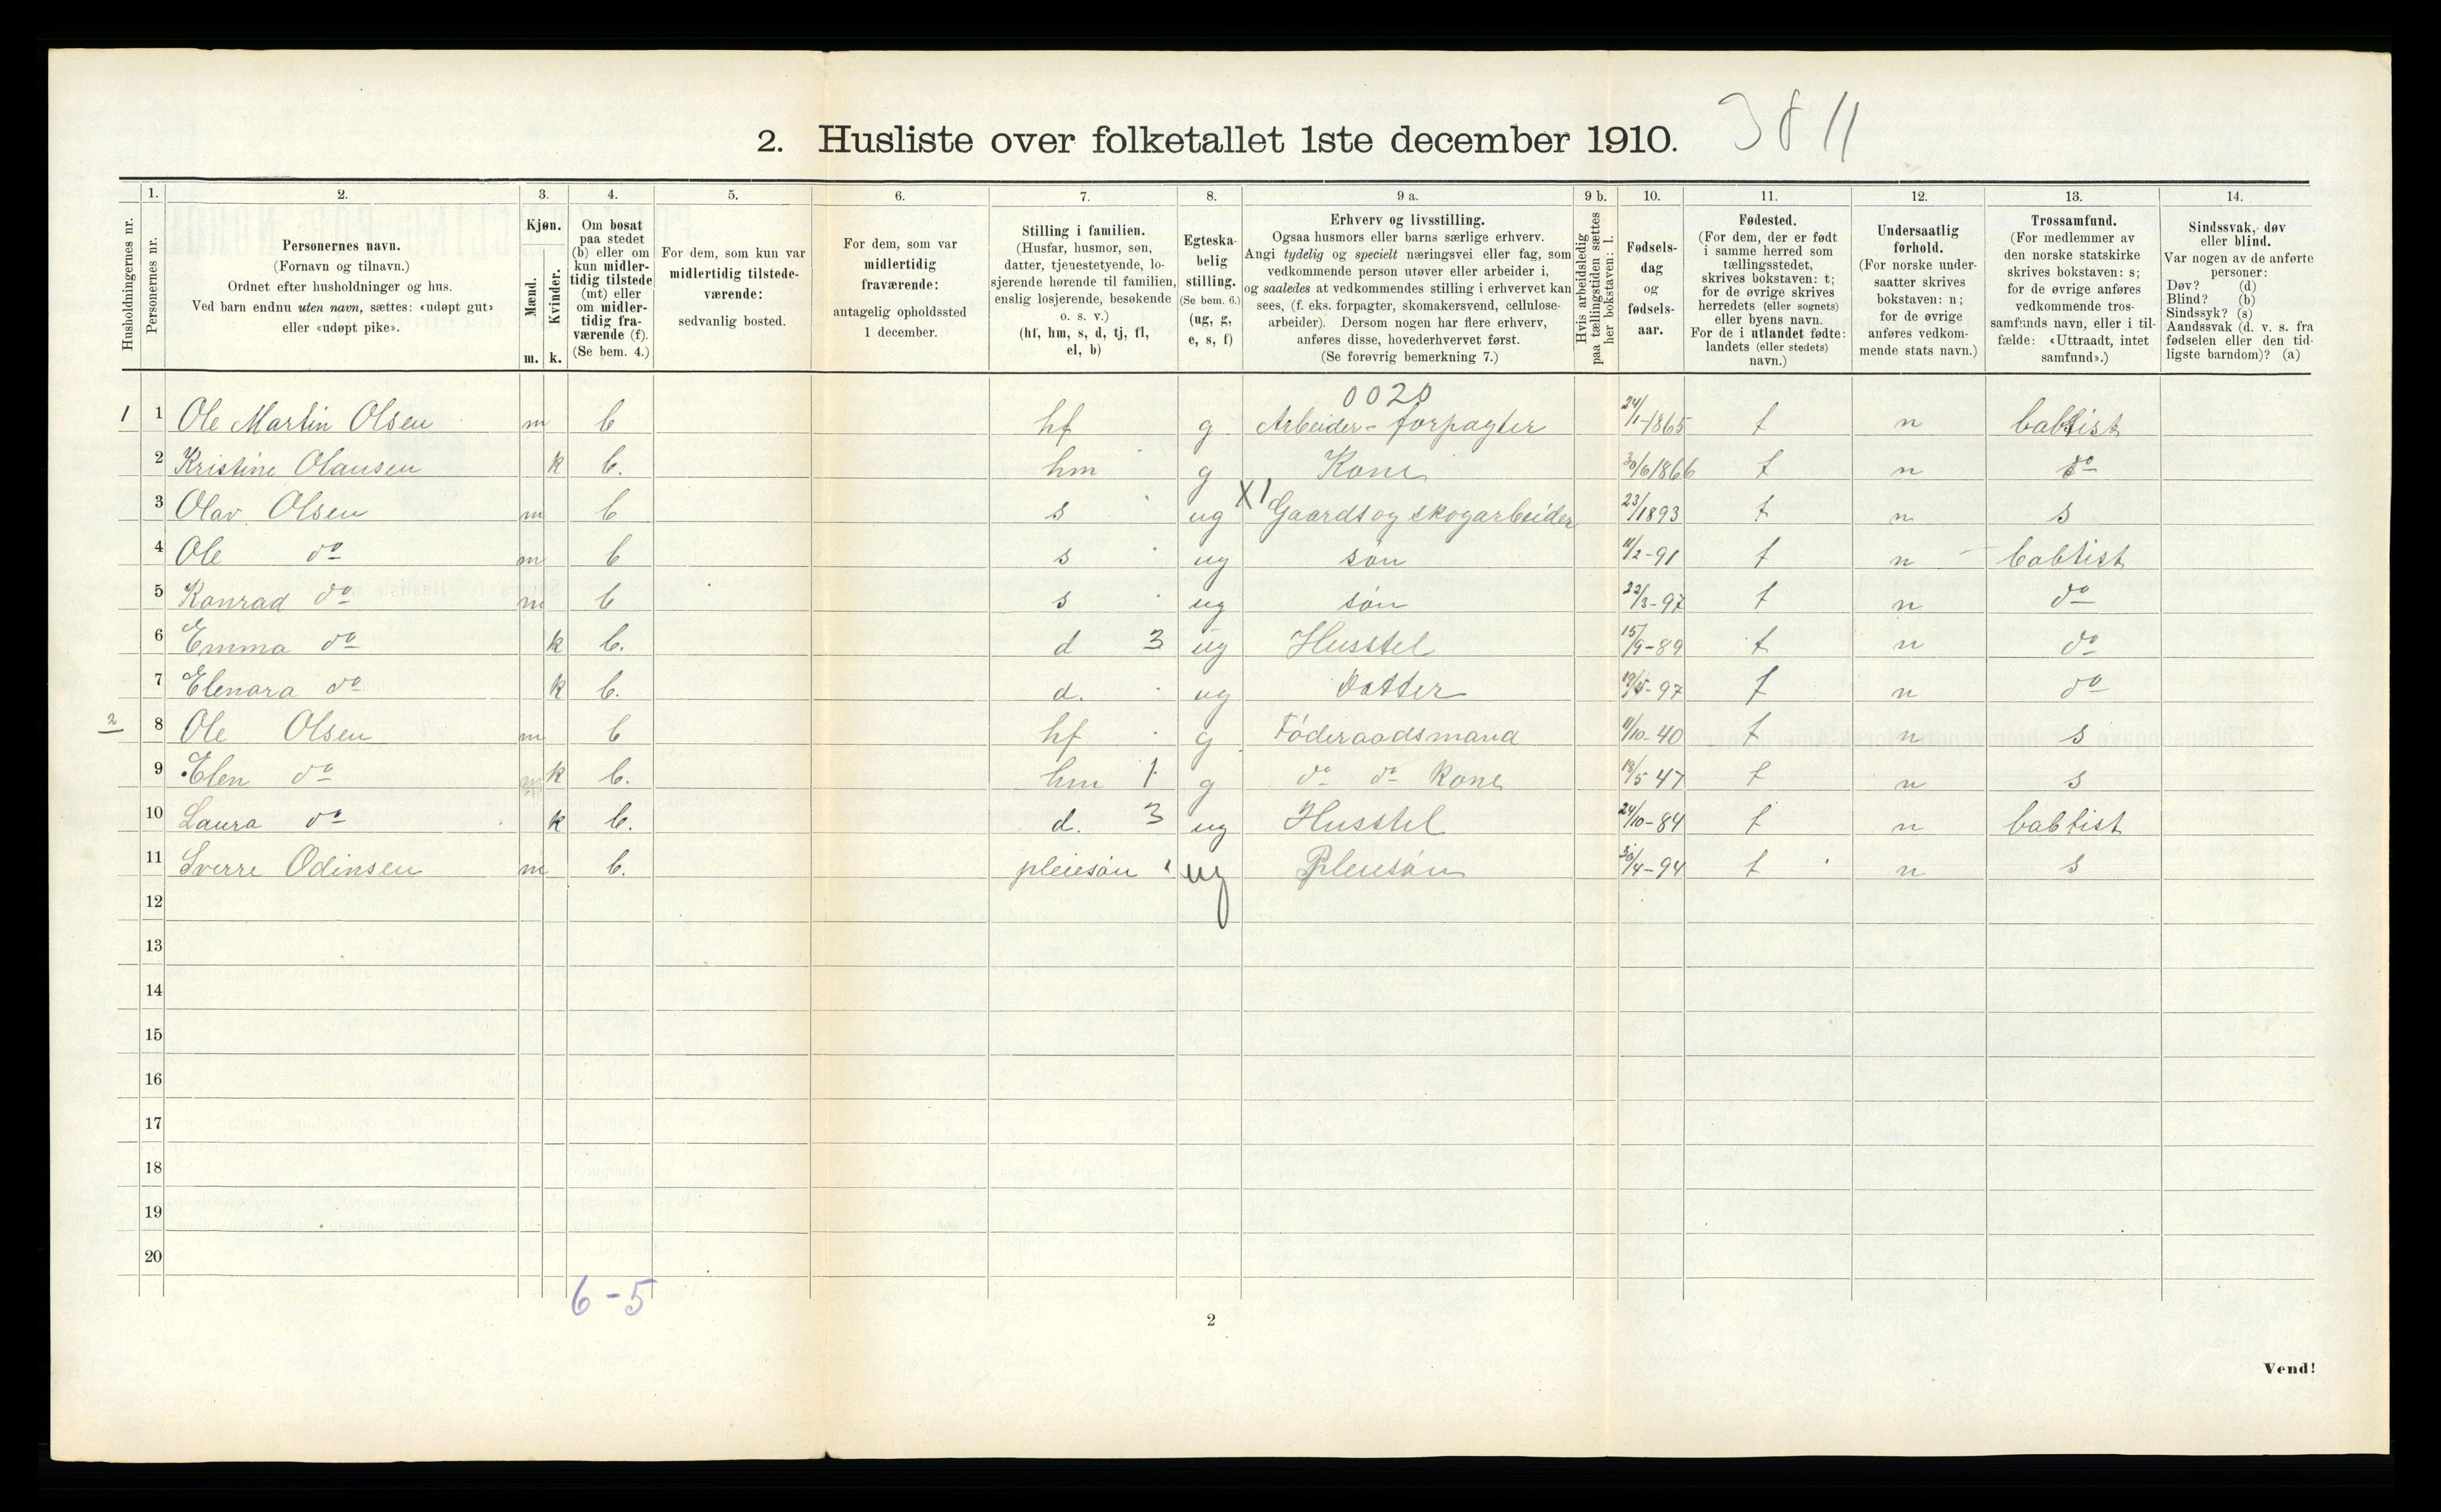 2. Husliste over folketallet 1ste december 1910. 38 11
Husholdningernes nr.
1. Personernes nr.
2. Personernes navn.
(Fornavn og tilnavn.)
Ordnet efter husholdninger og hus.
Ved barn endnu uten navn, sættes: «udøpt gut»
eller «udøpt pike».
3. Kjøn.
Mænd. m.
Kvinder. k.
4. Om bosat
paa stedet
(b) eller om
kun midler-
tidig tilstede
(mt) eller
om midler-
tidig fra-
værende (f).
(Se bem. 4.)
5. For dem, som kun var
midlertidig tilstede-
værende:
sedvanlig bosted.
6. For dem, som var
midlertidig
fraværende:
antagelig opholdssted
1 december.
7. Stilling i familien.
(Husfar, husmor, søn,
datter, tjenestetyende, lo-
sjerende hørende til familien,
enslig losjerende, besøkende
o. s. v.)
(hf, hm, s, d, tj, fl,
el, b)
8. Egteska-
belig
stilling.
(Se bem. 6.)
(ug, g,
e, s, f)
9 a. Erhverv og livsstilling.
Ogsaa husmors eller barns særlige erhverv.
Angi tydelig og specielt næringsvei eller fag, som
vedkommende person utøver eller arbeider i,
og saaledes at vedkommendes stilling i erhvervet kan
sees, (f. eks. forpagter, skomakersvend, cellulose-
arbeider). Dersom nogen har flere erhverv,
anføres disse, hovederhvervet først.
(Se forøvrig bemerkning 7.)
9 b. Hvis arbeidsledig
paa tællingstiden sættes
her bokstaven: l.
10. Fødsels-
dag
og
fødsels-
aar.
11. Fødested.
(For dem, der er født
i samme herred som
tællingsstedet,
skrives bokstaven: t;
for de øvrige skrives
herredets (eller sognets)
eller byens navn.
For de i utlandet fødte:
landets (eller stedets)
navn.)
12. Undersaatlig
forhold.
(For norske under-
saatter skrives
bokstaven: n;
for de øvrige
anføres vedkom-
mende stats navn.)
13. Trossamfund.
(For medlemmer av
den norske statskirke
skrives bokstaven: s;
for de øvrige anføres
vedkommende tros-
samfunds navn, eller i til-
fælde: «Uttraadt, intet
samfund».)
14. Sindssvak, døv
eller blind.
Var nogen av de anførte
personer:
Døv? (d)
Blind? (b)
Sindssyk? (s)
Aandssvak (d. v. s. fra
fødselen eller den tid-
ligste barndom)? (a)
0020
1 1 Ole Martin Olsen m b hf g Arbeider - forpagter 24/1-1865 t n babtist
2 Kristine Olausen k b. hm g Kone 30/6 1866 t n do
3 Olav Olsen m b s ug X1 Gaards og skogarbeider 23/1 1893 t n s
4 Ole do m b s ug søn 11/2-91 t n babtist
5 Konrad do m b s ug søn 22/3-97 t n do
6 Emma do k b. d 3 ug Husstel 15/9-89 t n do
7 Elenora do k b. d. ug Datter 19/5-97 t n do
2 8 Ole Olsen m b hf g Føderaadsmand 11/10-40 t n s
9 Elen do k b. hm 1 g do do Kone 18/5 47 t n s
10 Laura do k b. d. 3 ug Husstel 24/10-84 t n babtist
11 Sverre Odinsen m b. pleiesøn ug Pleiesøn 30/4-94 t n s
12
13
14
15
16
17
18
19
20
6-5
2
Vend!